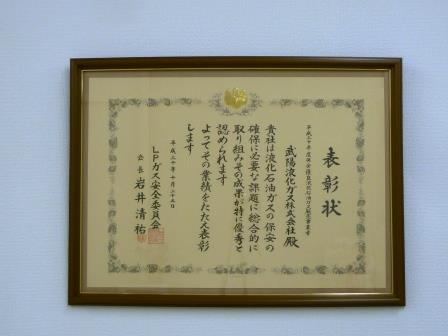 表彰状
平成二十年度保安優良液化石油ガス販売事業者
武陽液化ガス株式会社殿
貴社は液化石油ガスの保安の
確保に必要な課題に総合的に
取り組みその成果が特に優秀と
認められます
よってその業績をたたえ表彰
します
平成二十年十月二十五日
LPガス安全委員会
会長 岩井清祐